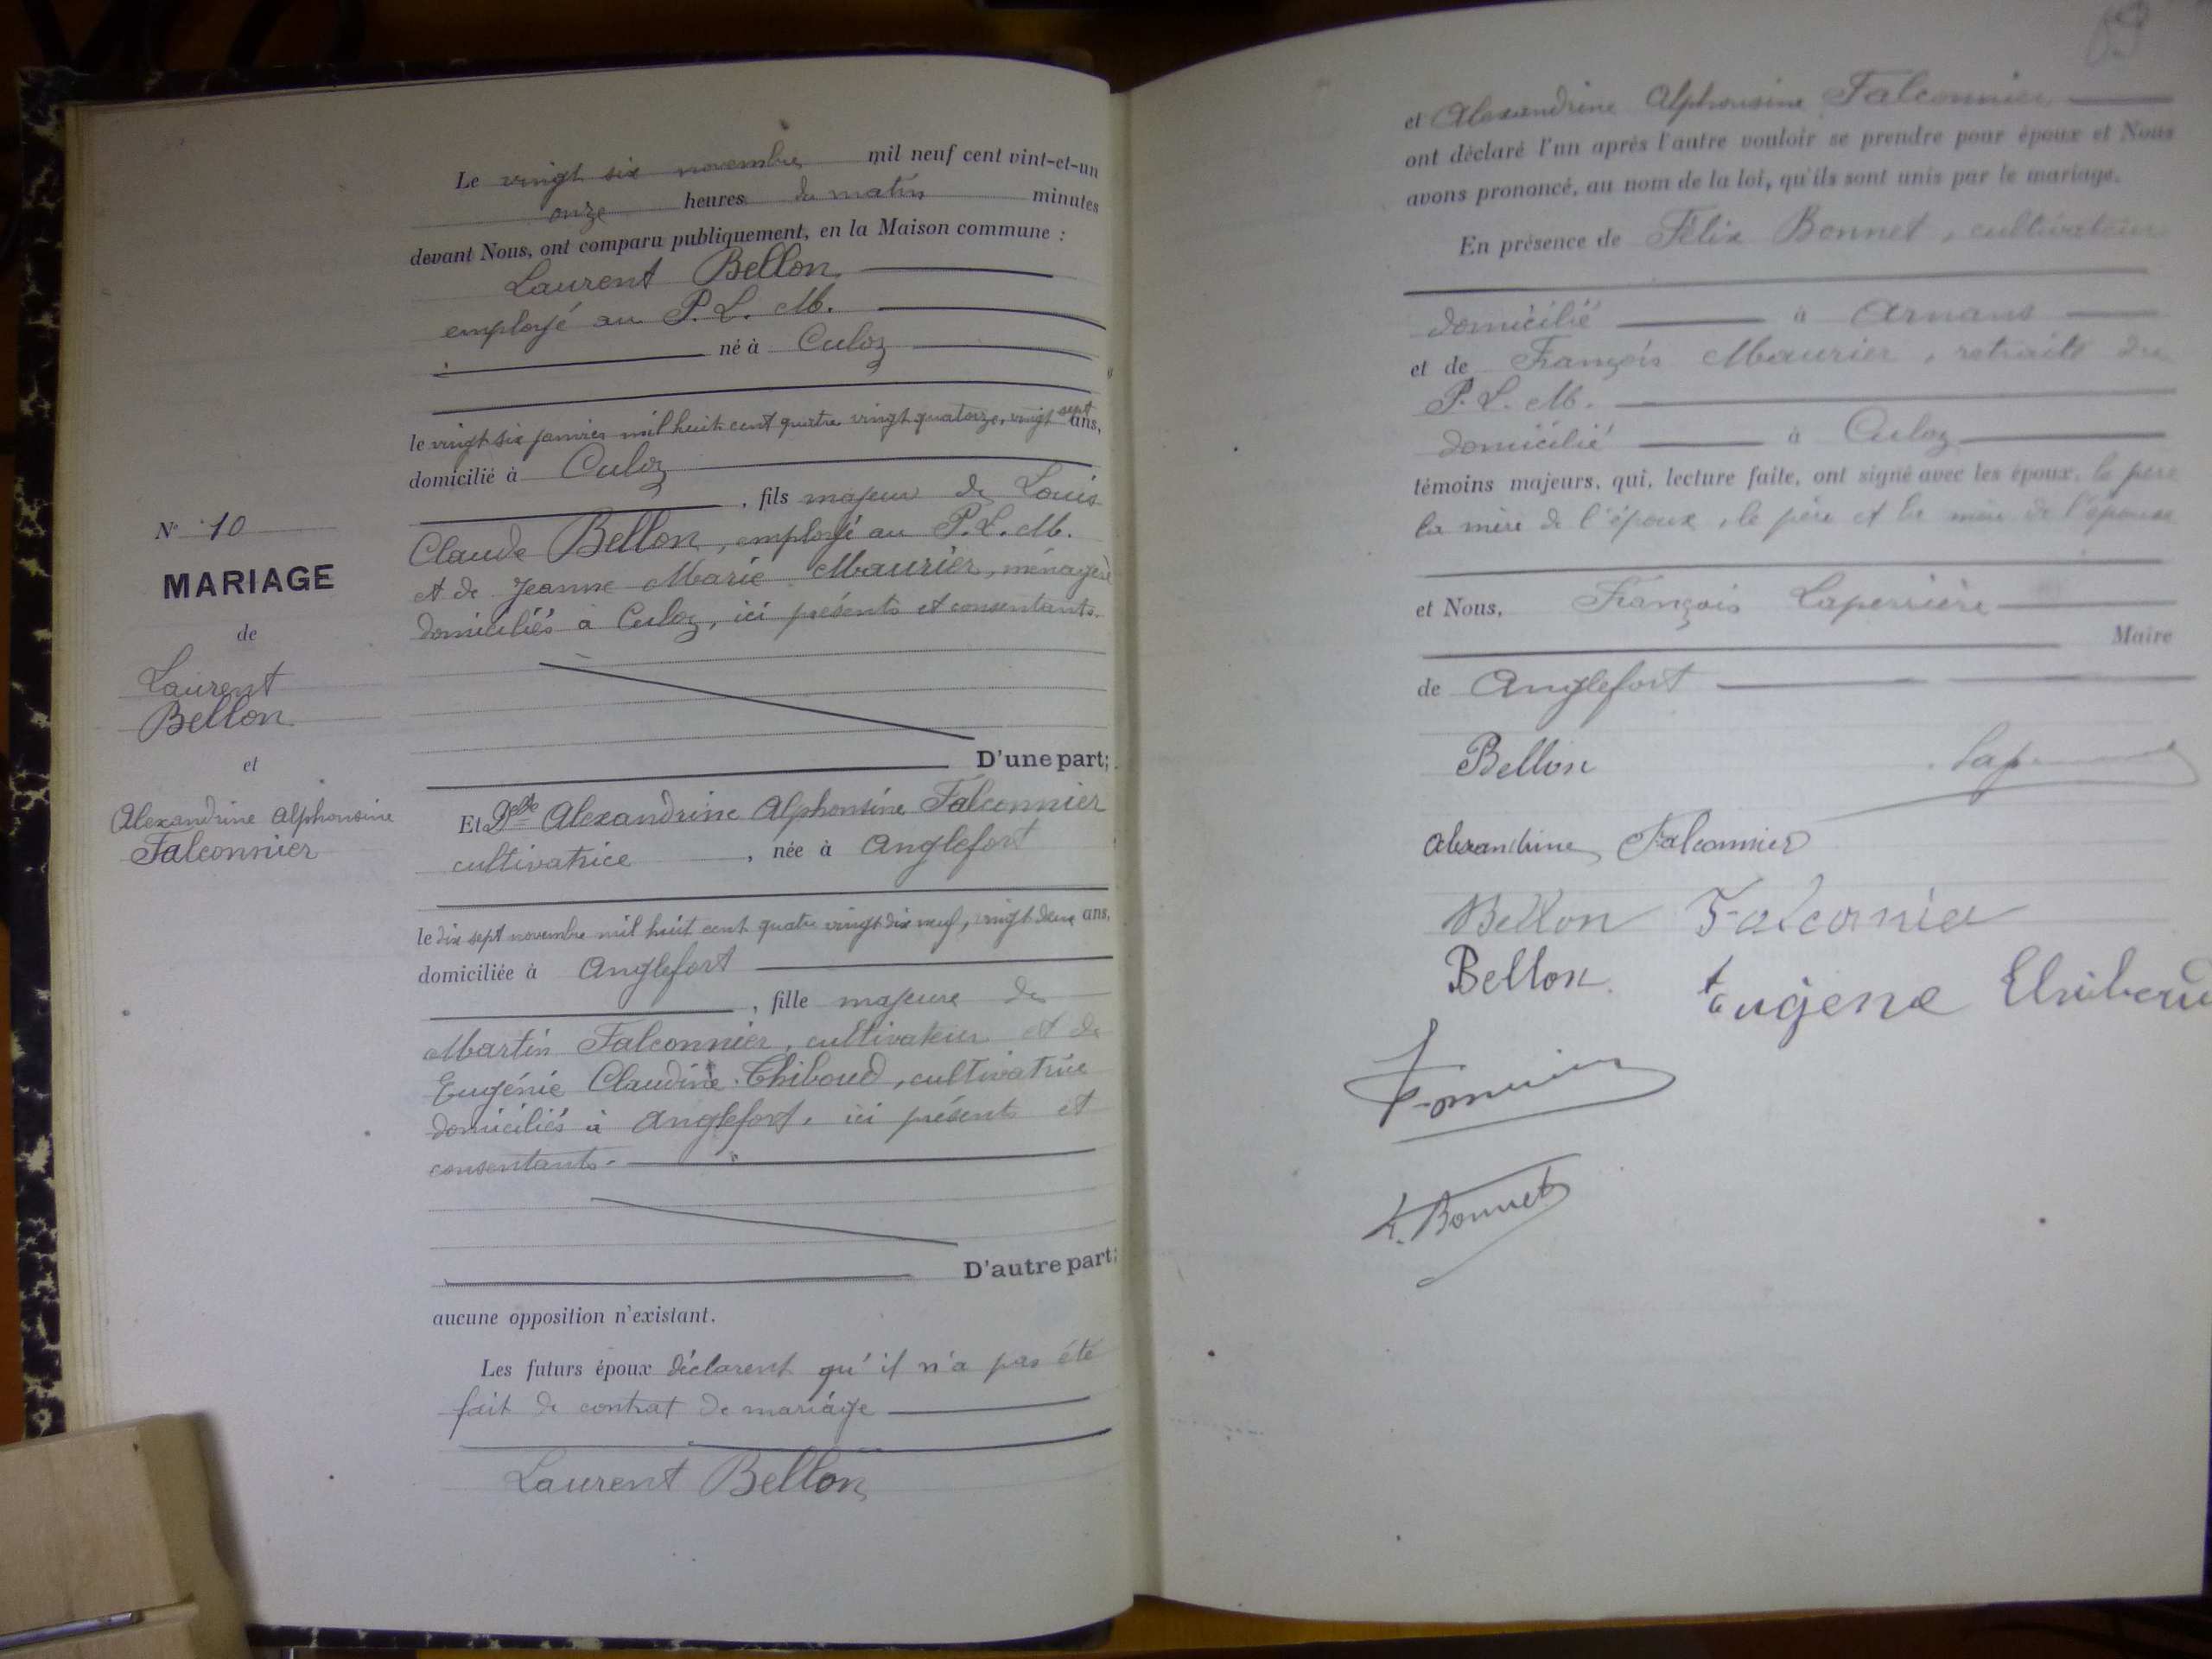 N° 10
MARIAGE
de
Laurent
Bellon
et
Alexandrine Alphonsine
Falconnier
Le vingt six novembre mil neuf cent vint-et-un
onze heures du matin minutes
devant Nous, ont comparu publiquement, en la Maison commune :
Laurent Bellon
employé au P. L. M.
né à Culoz
le vingt six janvier mil huit cent quatre vingt quatorze, vingt sept ans,
domicilié à Culoz
, fils majeur de Louis
Claude Bellon, employé au P. L. M.
et de Jeanne Marie Maurier, ménagère
domiciliés à Culoz, ici présents et consentants.
D'une part;
Et Delle Alexandrine Alphonsine Falconnier
cultivatrice , née à Anglefort
le dix sept novembre mil huit cent quatre vingt dix neuf, vingt deux ans,
domiciliée à Anglefort
, fille majeure de
Martin Falconnier, cultivateur et de
Eugénie Claudine Thiboud, cultivatrice
domiciliés à Anglefort, ici présents et
consentants.
D'autre part;
aucune opposition n'existant.
Les futurs époux déclarent qu'il n'a pas été
fait de contrat de mariage
Laurent Bellon
et Alexandrine Alphonsine Falconnier
ont déclaré l'un après l'autre vouloir se prendre pour époux et Nous
avons prononcé, au nom de la loi, qu'ils sont unis par le mariage.
En présence de Félix Bonnet, cultivateur
domicilié à Arnans
et de François Maurier, retraité du
P. L. M.
domicilié à Culoz
témoins majeurs, qui, lecture faite, ont signé avec les époux, le père
la mère de l'époux, le père et la mère de l'épouse
et Nous, François Laperrière
Maire
de Anglefort
Bellon
Alexandrine Falconnier
Bellon Falconier
Bellon Eugene
F. Bonnet